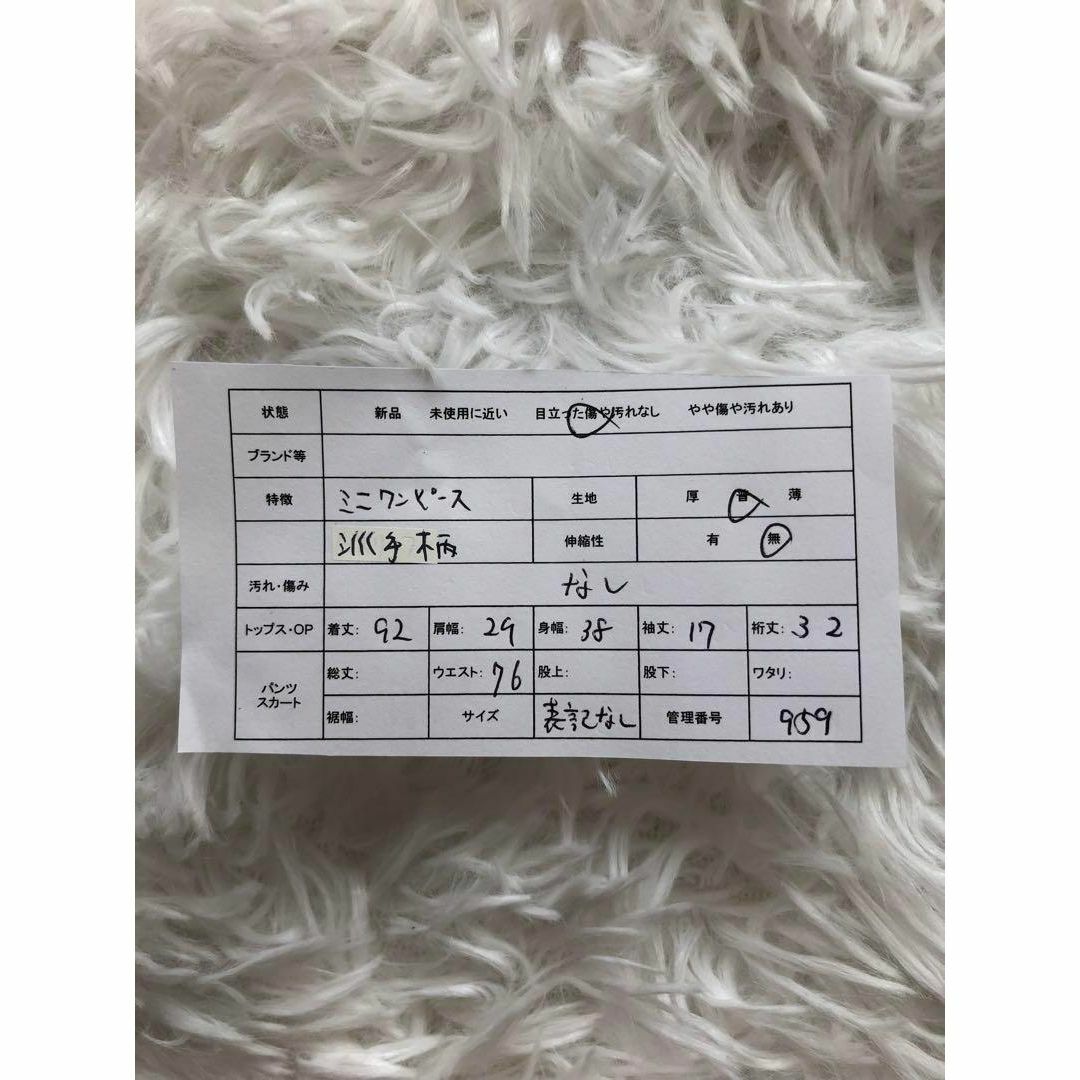 状態 新品 未使用に近い 目立った傷や汚れなし やや傷や汚れあり
ブランド等
特徴 ミニワンピース 生地 厚 普 薄
伸縮性 有 無
汚れ・傷み なし
トップス・OP 着丈: 92 肩幅: 29 身幅: 38 袖丈: 17 裄丈: 32
パンツ スカート 総丈: ウエスト: 76 股上: 股下: ワタリ:
裾幅: サイズ 表記なし 管理番号 959